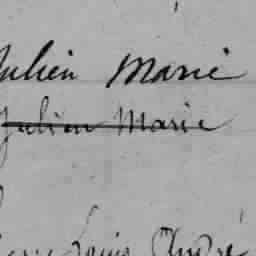 Julien Marie
Julien Marie
Louis André